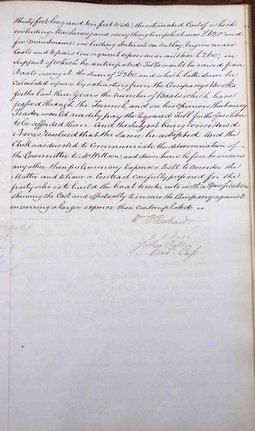 Thirty feet long and ten feet wide, the estimated Cost of which
including Machinery and every thing Complete was £1200 and
for Maintenance including Interest on Outlay, Engineman
Coals and Repairs Consequent upon wear and tear £260, in
support of which the anticipated Tolls would be raised from
Boats using it the sum of £360, and which latter Sum he
Calculated upon by extracting from the Companys Books
for the last three Years the Number of Boats which have
passed through the Tunnel, and on his opinion that every
Trader would readily pay the proposed Toll for the facilities
to be afforded them and the subject being considered
it was Resolved that the same be adopted And the
Clerk was desired to Communicate the determination of
the Committee to Mr Wilson, and
any other than preliminary Expenses to
Matter and to have a Contract carefully prepared for the
party who is to build the boat to enter into with a Specification
shewing the Cost and effectually to ensure the Company against
incurring a larger expence than contemplated
Wm
John